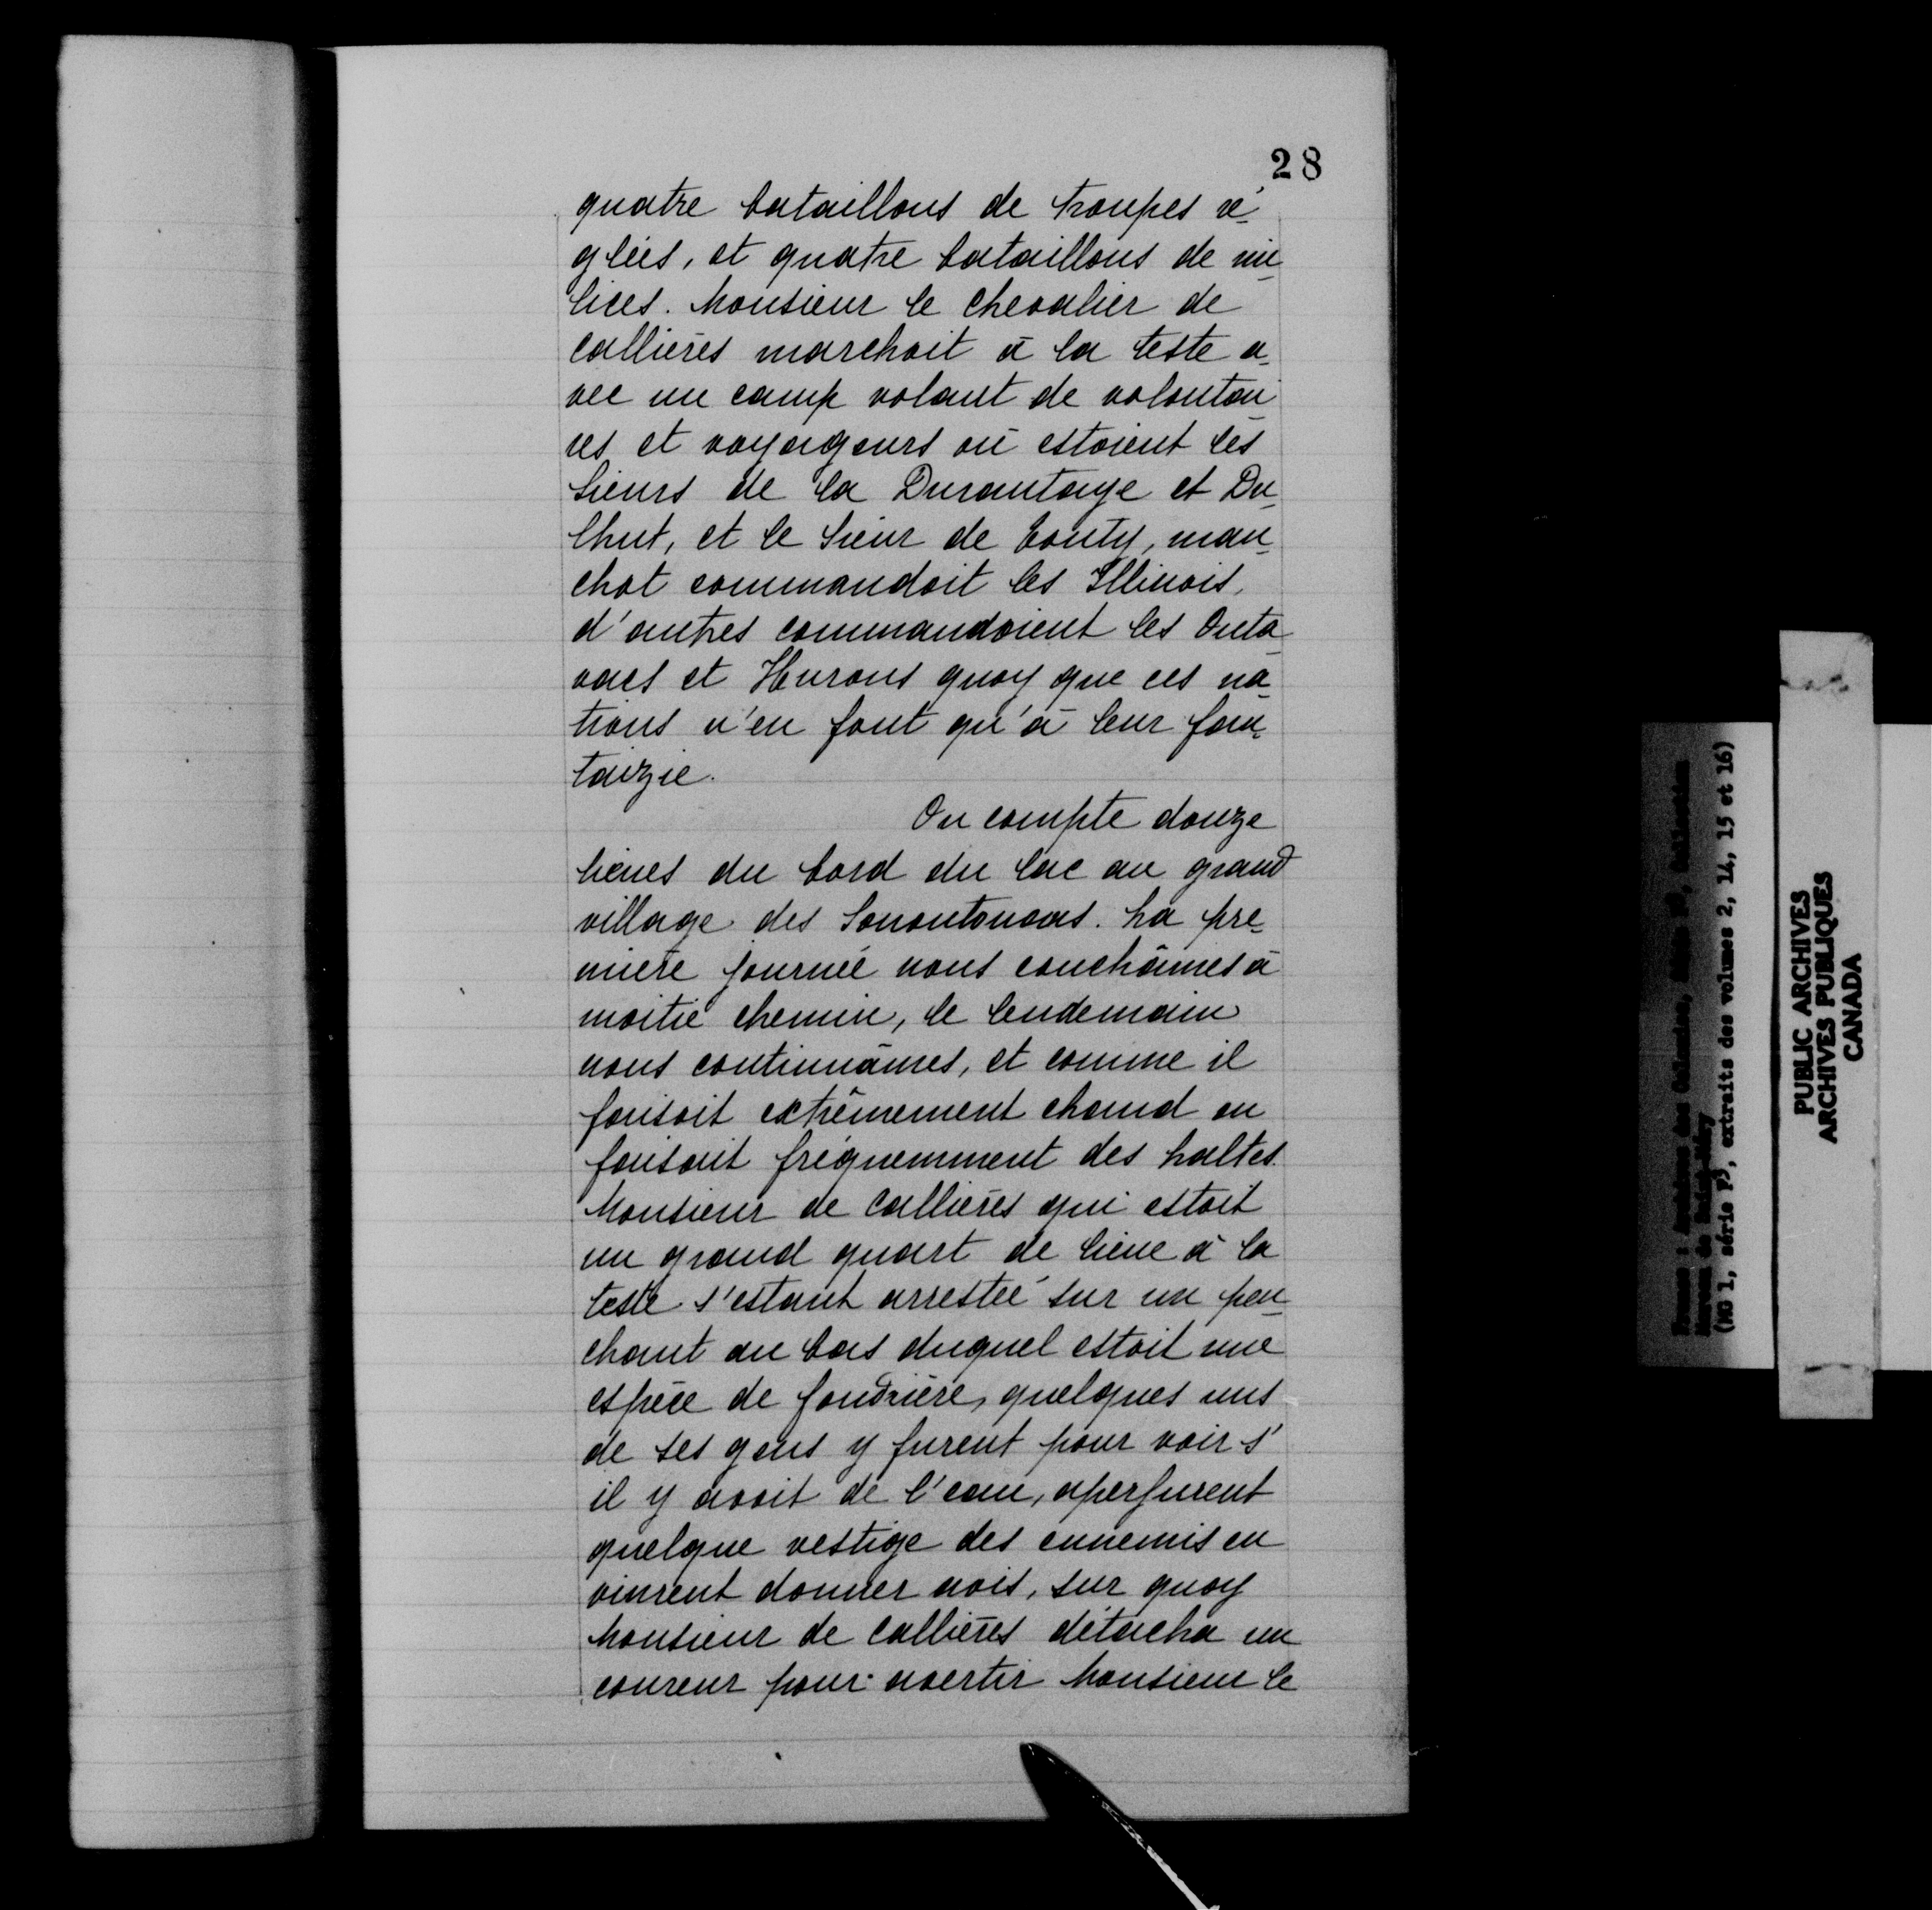 28
quatre bataillons de troupes ré-
glées, et quatre bataillons de mi-
lices. Monsieur le chevalier de
Callières marchait à la teste a-
vec un camp volant de volontai-
res et voyageurs où estoient les
Sieurs de la Durantaye et Du-
lhut, et le Sieur de Tonty, man-
chot commandoit les Illinois,
d'autres commandoient les Outa-
vacs et Hurons quoy que ces na-
tions n'en font qu'à leur fan-
taizie.
On compte douze
lieues du bord du lac au grand
village des Sonontouans. La pre-
mière journée nous couchâmes à
moitié chemin, le lendemain
nous continuâmes, et comme il
faisoit extrêmement chaud on
faisait fréquemment des haltes.
Monsieur de Callières qui estoit
un grand quart de lieue à la
teste s'estant arrestée sur un pen-
chant au bas duquel estoit une
espèce de fondrière, quelques uns
de ses gens y furent pour voir s'
il y avoit de l'eau, aperçurent
quelque vestige des ennemis en
vinrent donner avis, sur quoy
Monsieur de Callières détacha un
coureur pour avertir Monsieur le
France : Archives des Colonies,
(MG 1, série F3, extraits des volumes 2, 14, 15 et 16)
PUBLIC ARCHIVES
ARCHIVES PUBLIQUES
CANADA